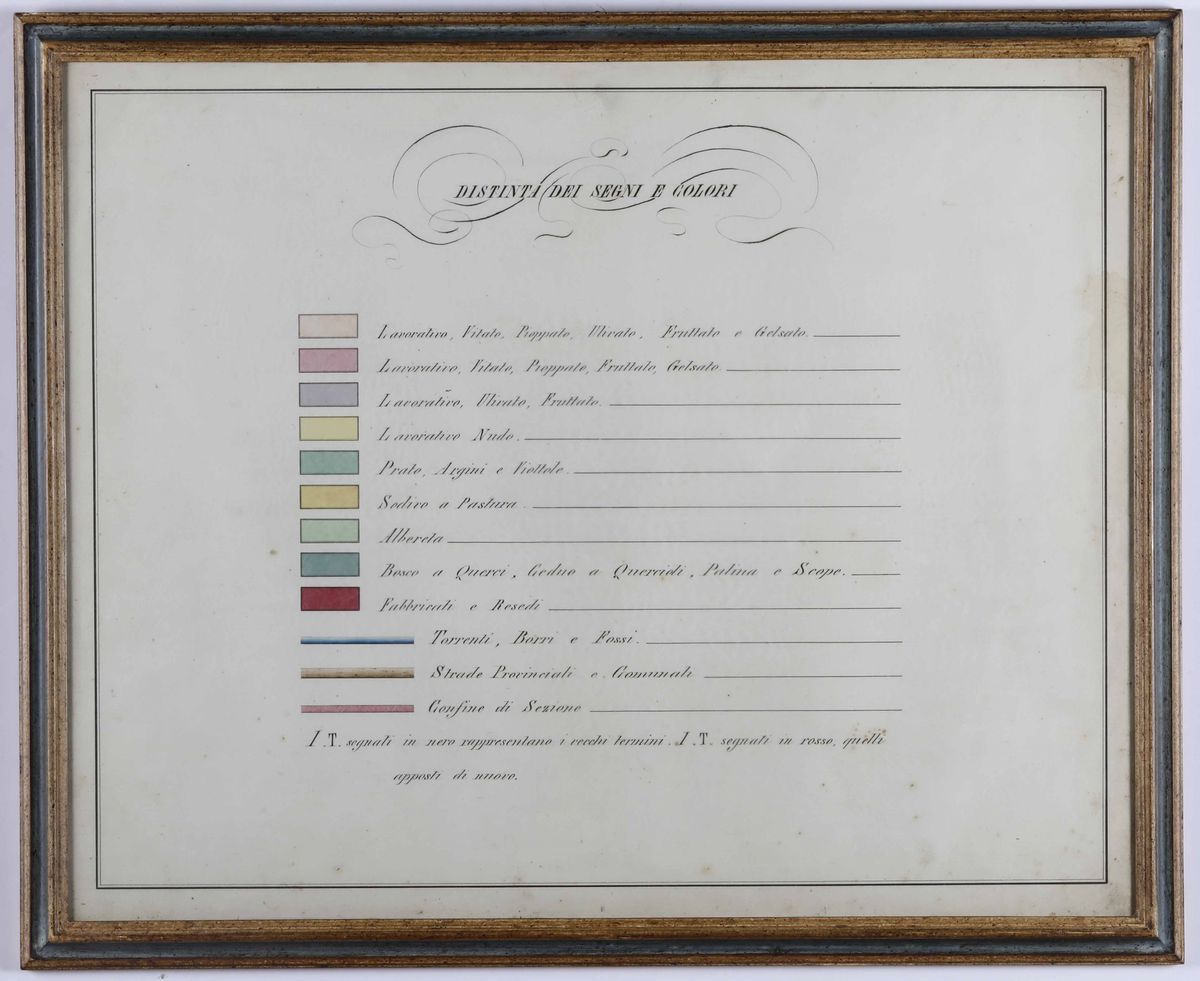 DISTINTA DEI SEGNI E COLORI
Lavorativo, Vitato, Pioppato, Ulivato, Fruttato e Gelsato.
Lavorativo, Vitato, Pioppato, Fruttato, Gelsato.
Lavorativo, Ulivato, Fruttato.
Lavorativo Nudo.
Prato, Argini e Viottole.
Sodivo a Pastura.
Albereta
Bosco a Querci, Ceduo a Quercioli, Palina e Scope.
Fabbricati e Resedi
Torrenti, Borri e Fossi.
Strade Provinciali e Comunali
Confine di Sezione
I .T. segnati in nero rappresentano i vecchi termini. I .T. segnati in rosso, quelli
apposti di nuovo.